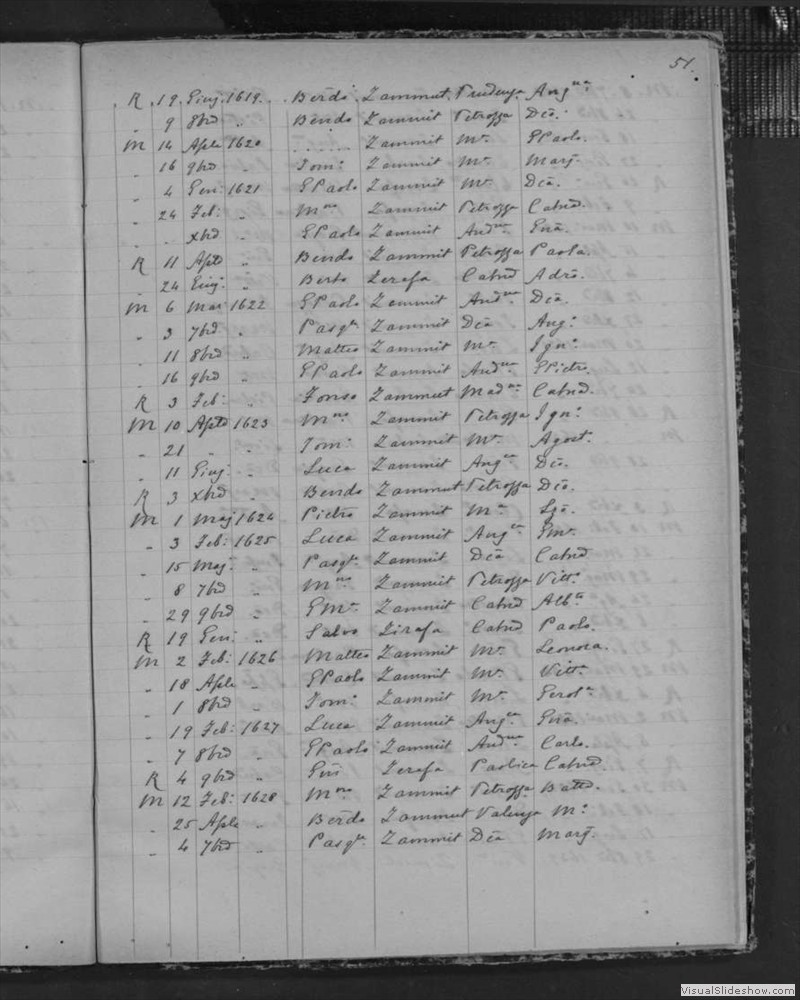 51.
R 19 Giug. 1619. Berdo Zammut Prudenza Ang.na
" 9 8bre " Bendo Zammit Petrossa Dca.
M 14 Aple 1620 ...... Zammit Mr. GPaolo.
" 16 9bre " Tom: Zammit Mr. Marj
" 4 Gen: 1621 GPaolo Zammit Mr. Dca.
" 24 Feb: " Mno Zammit Petrossa Catna.
" . xbre " GPaolo Zammit Andna Gna.
R 11 Aple " Bendo Zammit Petrossa Paola
" 24 Giug. " Berto Zerafa Catna Adra.
M 6 Mar 1622 GPaolo Zammit Andna Dca.
" 3 7bre " Pasqle Zammit Dca Ang:
" 11 8bre " Matteo Zammit Mr. Ign:
" 16 9bre " GPaolo Zammit Andna GPietro
R 3 Feb: " Fonso Zammut Madna Catna.
M 10 Aple 1623 Mno Zammit Petrossa Ign:
" 21 " " Tom: Zammit Mr. Agost.
" 11 Giug. " Luca Zammit Angla Dca.
R 3 xbre " Bendo Zammut Petrossa Dca.
M 1 Mag 1624 Pietro Zammit Ma
" 3 Feb: 1625 Luca Zammit Angla GMr.
" 15 Mag. " Pasqle Zammit Dca Catna
" 8 7bre " Mno Zammit Petrossa Vitt.
" 29 9bre " GMa Zammit Catna Alb.
R 19 Gen: " Salvo Zirafa Catna Paolo.
M 2 Feb: 1626 Matteo Zammit Mr. Leonora.
" 18 Aple " GPaolo Zammit Mr. Vitt.
" 1 8bre " Tom: Zammit Mr. Gerol:
" 19 Feb: 1627 Luca Zammit Angla Gna.
" 7 8bre " GPaolo Zammit Andna Carlo.
R 4 9bre " Gni Zerafa Paolica Catna
M 12 Feb: 1628 Mno Zammit Petrossa Batta.
" 25 Aple " Berdo Zammut Valenza M:
" 4 7bre " Pasqle Zammit Dca Marj.
VisualSlideshow.com